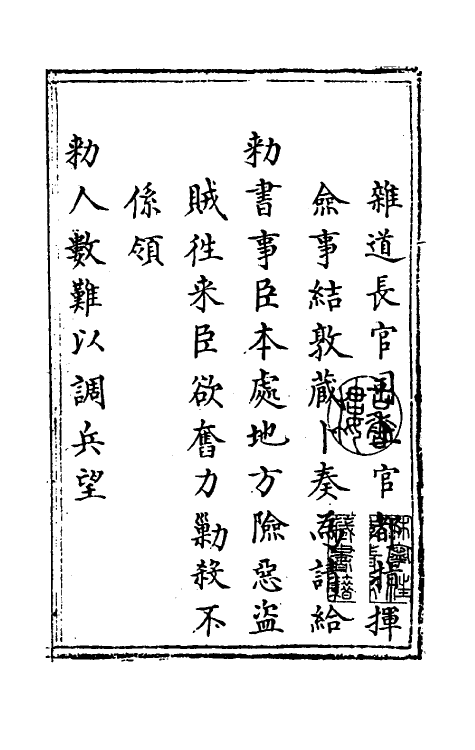 雜道長官司土官都指揮
僉事結敦藏卜奏為請給
勑書事臣本處地方險惡盜
賊徃来臣欲奮力勦殺不
係領
勑人數難以調兵望